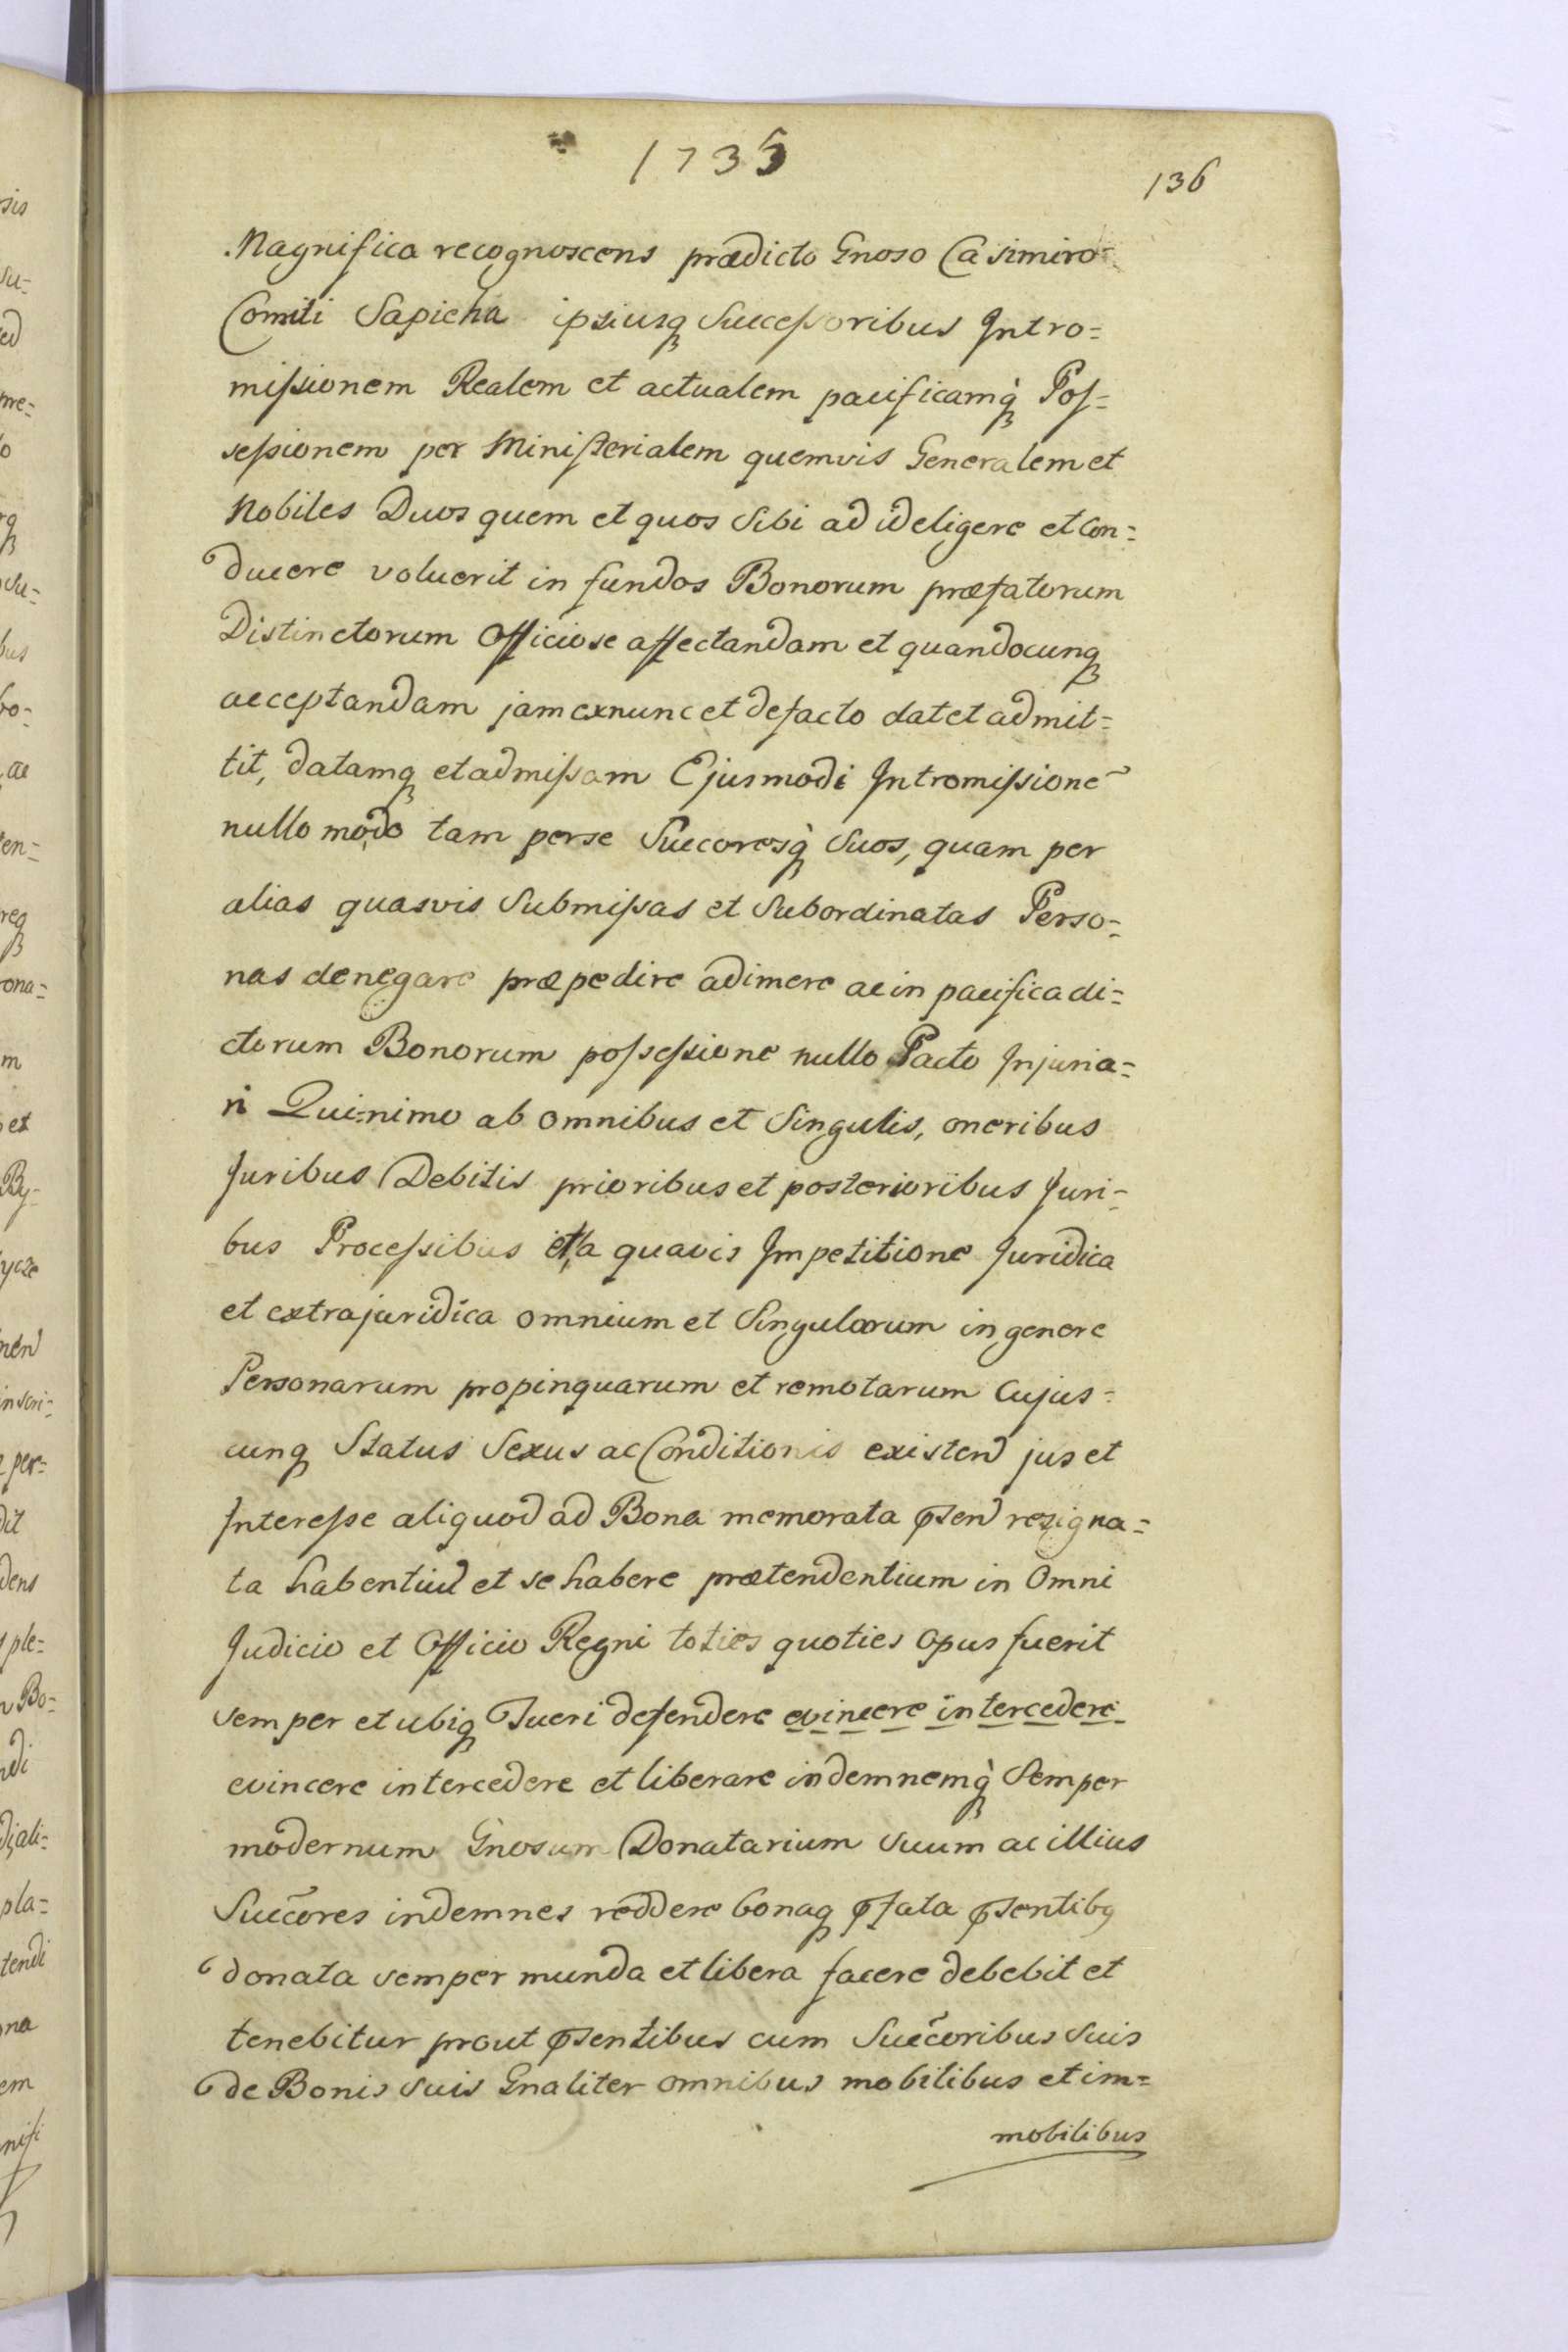 1735
136
Magnifica recognoscens prædicto Gnoso Casimiro
Comiti Sapieha ipsiusq Successoribus Intro=
missionem Realem et actualem pacificamq̀ Pos=
sessionem per Ministerialem quemvis Generalem et
Nobiles Duos quem et quos Sibi ad id eligere et Con=
ducere voluerit in fundos Bonorum præfatorum
Distinctorum Officiose affectandam et quandocunq
acceptandam jam exnunc et defacto dat et admit=
tit, datamq et admissam Ejusmodi Intromissionē
nullo modo tam per se Succoresq̀ Suos, quam per
alias quasvis Submissas et Subordinatas Perso=
nas denegare præpedire adimere ac in pacifica di=
ctorum Bonorum possessione nullo Pacto Injuria=
ri Qui=nimo ab omnibus et Singulis, oneribus
Juribus Debitis prioribus et posterioribus Juri=
bus Processibus et a quavis Impetitione Juridica
et extrajuridica omnium et Singularum in genere
Personarum propinquarum et remotarum Cujus=
cunq Status Sexus ac Conditionis existen jus et
Interesse aliquod ad Bona memorata pṡen resigna=
ta habentiū et se habere prætendentium in Omni
Judicio et Officio Regni toties quoties Opus fuerit
semper et ubiq Tueri defendere evincere intercedere
evincere intercedere et liberare indemnemq̀ Semper
modernum Gnosum Donatarium suum ac illius
Succ̄ores indemnes reddere bonaq pfata psentibq
donata semper munda et libera facere debebit et
tenebitur prout psentibus cum Succ̄oribus Suis
de Bonis suis Gnaliter omnibus mobilibus et im=
mobilibus